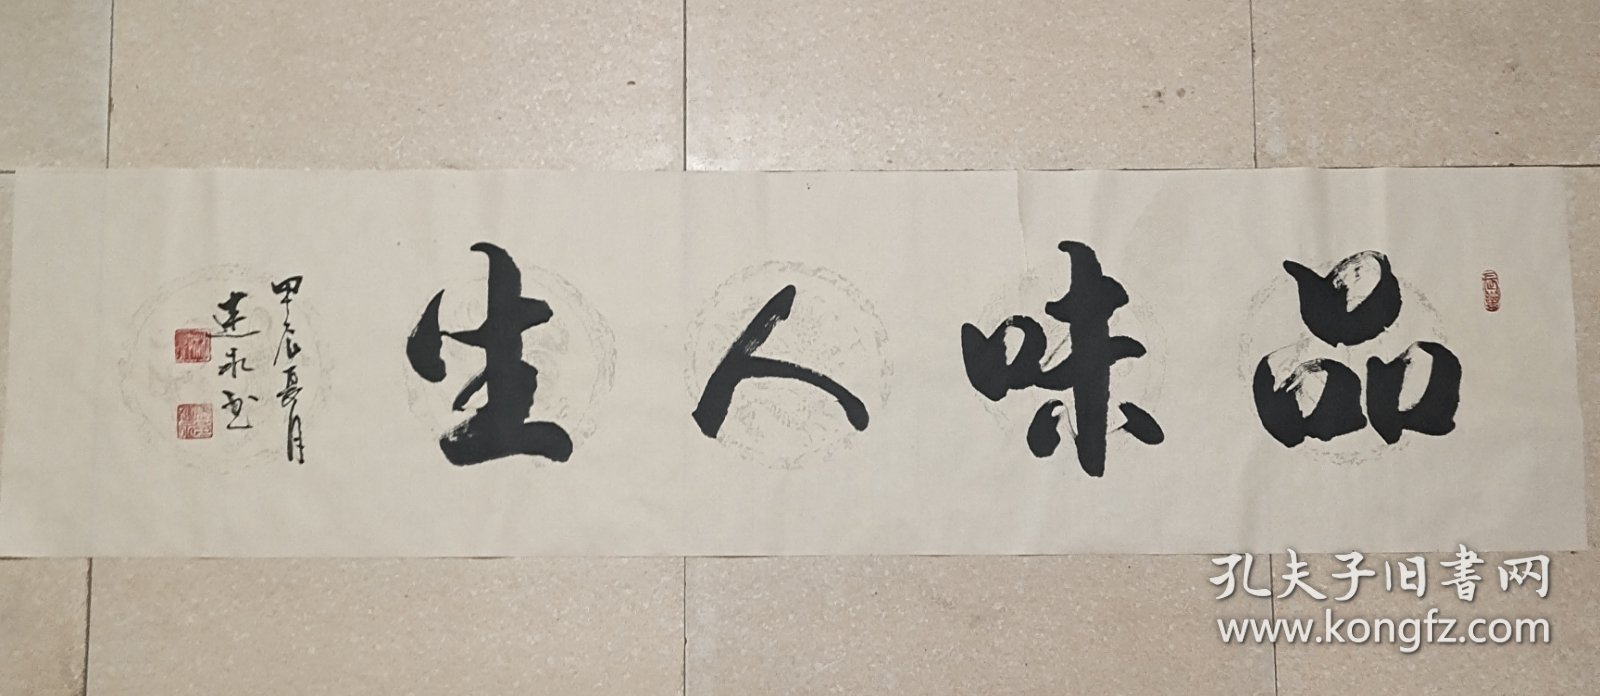 品味人生
甲辰夏月
建永书
孔夫子旧書网
www.kongfz.com